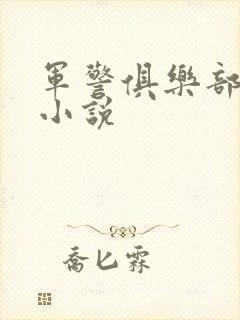 軍警俱樂部
小說
喬匕霖